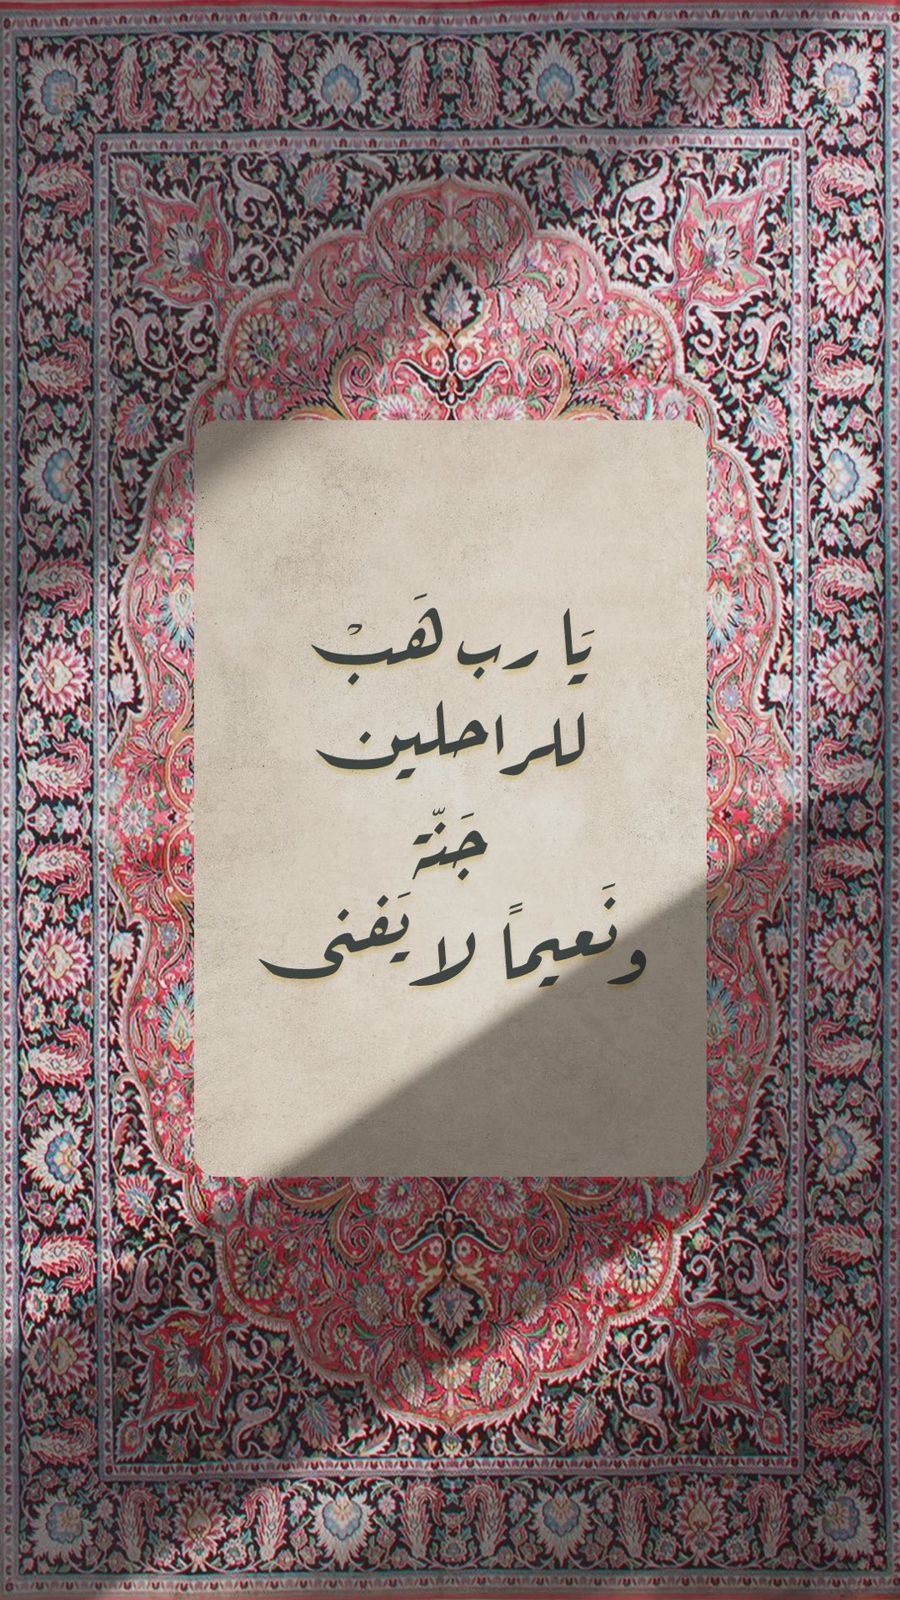 يَا رب هَبْ
للراحلين
جَنّة
ونَعيماً لا يَفنى